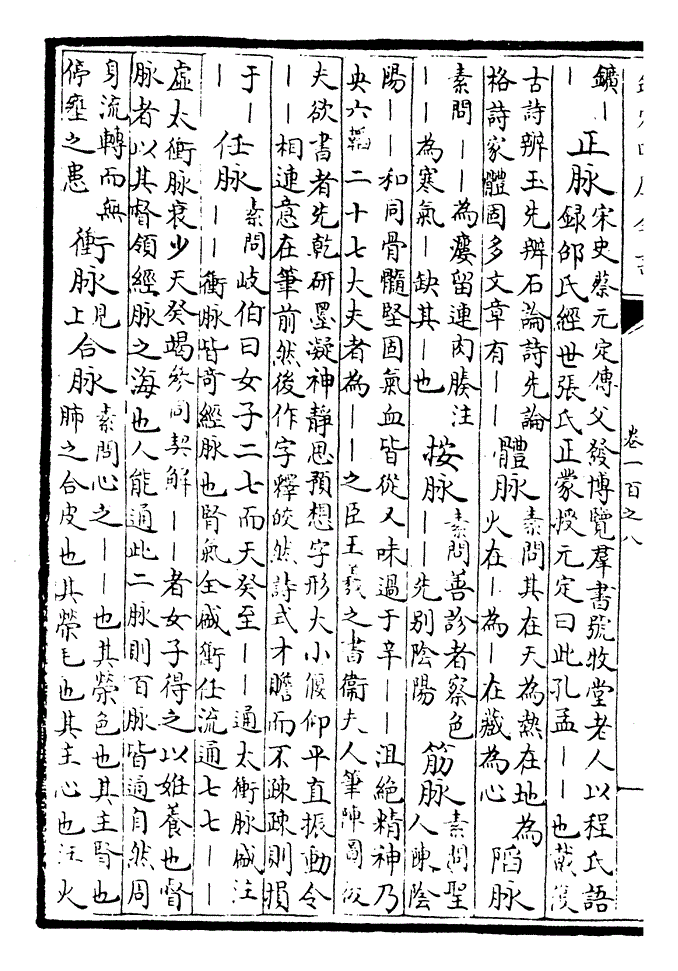 卷一百之八
鑛｜
｜
正脈
宋史蔡元定傳父發博覽羣書號牧堂老人以程氏語
錄邵氏經世張氏正蒙授元定曰此孔孟｜｜也戴復
古詩辨玉先辨石論詩先論
格詩家體固多文章有｜｜
體脈
素問其在天為熱在地為
火在｜為｜在藏為心
陷脈
素問｜｜為瘻留連肉腠注
｜｜為寒氣｜缺其｜也
按脈
素問善診者察色
｜｜先別陰陽
筋脈
素問聖
人陳陰
陽｜｜和同骨髓堅固氣血皆從又味過于辛｜｜沮絶精神乃
央六韜二十七大夫者為｜｜之臣王羲之書衛夫人筆陣圖後
夫欲書者先乾研墨凝神靜思預想字形大小偃仰平直振動令
｜｜相連意在筆前然後作字釋皎然詩式才贍而不疎疎則損
于｜｜
｜
任脈
素問岐伯曰女子二七而天癸至｜｜通太衝脈盛注
｜｜衝脈皆奇經脈也腎氣全盛衝任流通七七｜｜
虛太衝脈衰少天癸竭參同契解｜｜者女子得之以姙養也督
脈者以其督領經脈之海也人能通此二脈則百脈皆通自然周
身流轉而無
停壅之患
衝脈
見
上
合脈
素問心之｜｜也其榮色也其主腎也
肺之合皮也其榮毛也其主心也注火